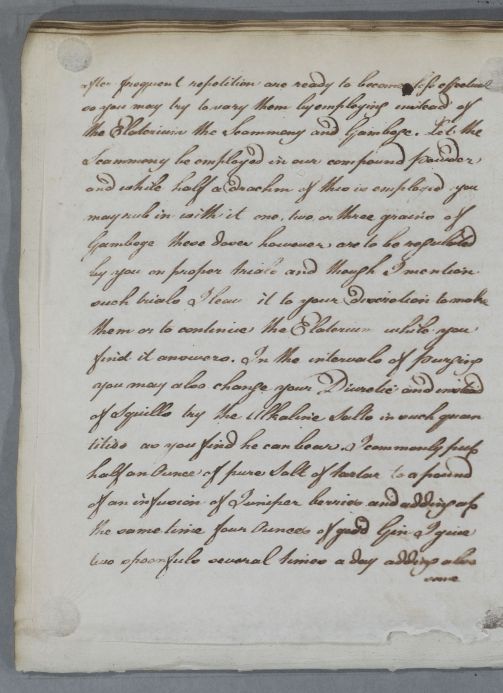 after frequent repetition are ready to become less effectual
so you may try to vary them by employing instead of
the Elaterium the Scammony and Gamboge. Let the
Scammony be employed in our compound powder
and while half a drachm of this is employed you
may rub in with it one, two, or three grains of
Gamboge these doses however are to be regulated
by you on proper trials and though I mention
such trials I leave it to your Discretion to make
them or to continue the Elaterium while you
find it answers. In the intervals of purging
you may also change your Diuretic and instead
of Squills try the Alkaline Salts in such quan
tities as you find he can bear. I commonly put
half an Ounce of pure Salt of tartar to a pound
of an infusion of Juniper berries and adding at
the same time four Ounces of good Gin I give
two spoonfuls several times a day adding also
some